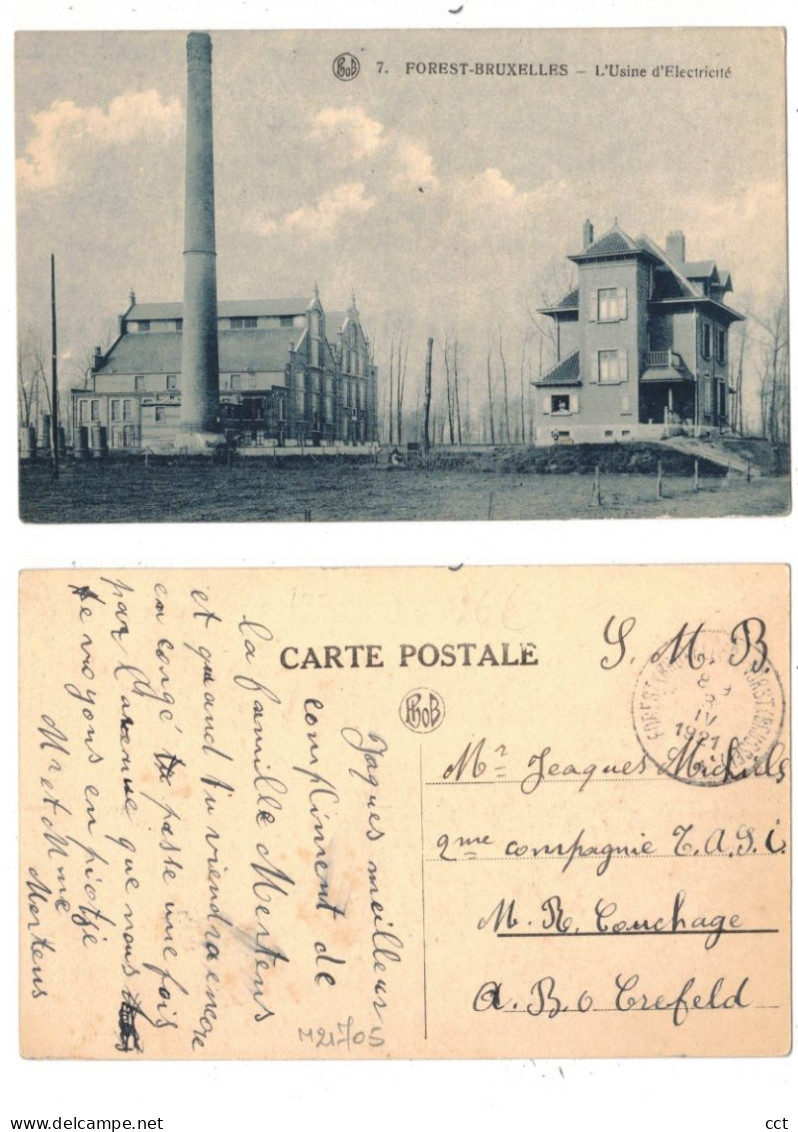 PhoB 7. FOREST-BRUXELLES – L'Usine d'Electricité
CARTE POSTALE
PhoB
26€
S. M. B.
1921
IV
Mr Jeaques Michiels
2me compagnie T. A. S. i.
M. R. Couchage
A. B. O Crefeld
Jaques meilleur
compliment de
la famille Mertens
et quand tu viendra encore
en congé tu passe une fois
par l'avenue que nous
te voyons en piotje
Mr et Mme
Mertens
M21705
www.delcampe.net
cct